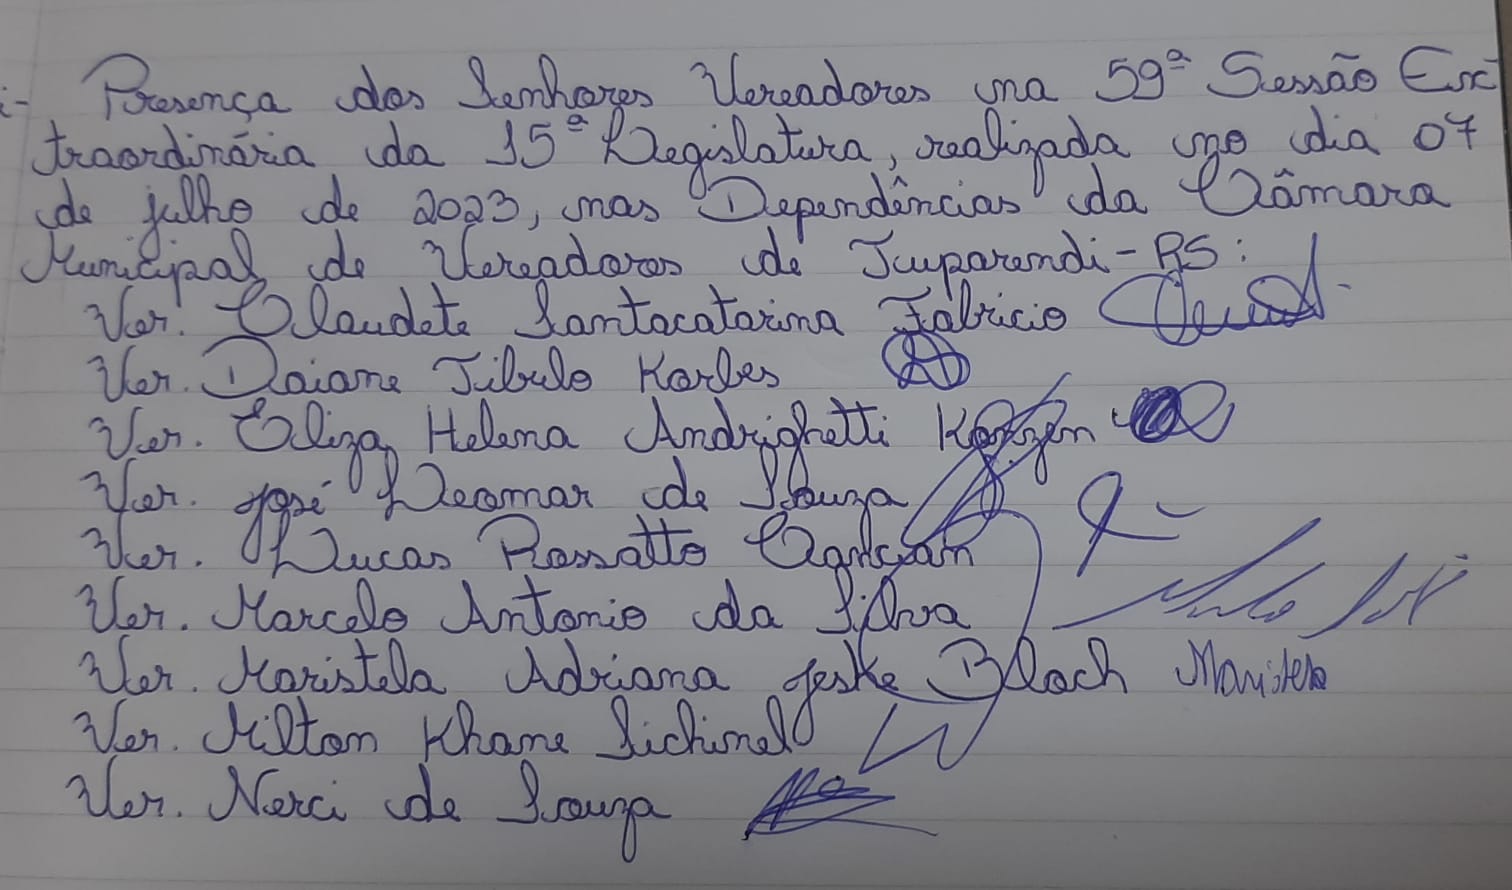 Presença dos Senhores Vereadores na 59ª Sessão Ex
traordinária da 15ª Legislatura, realizada no dia 07
de julho de 2023, nas Dependências da Câmara
Municipal de Vereadores de Tuparendi-RS:
Ver. Claudete Santacatarina Fabricio
Ver. Daiane Tibulo Karbes
Ver. Eliza Helena Andrighetti
Ver. José Leomar de Souza
Ver. Lucas Rossatto
Ver. Marcelo Antonio da Silva
Ver. Maristela Adriana Jeske Bloch Maristela
Ver. Milton Khane Sichinel
Ver. Nerci de Souza